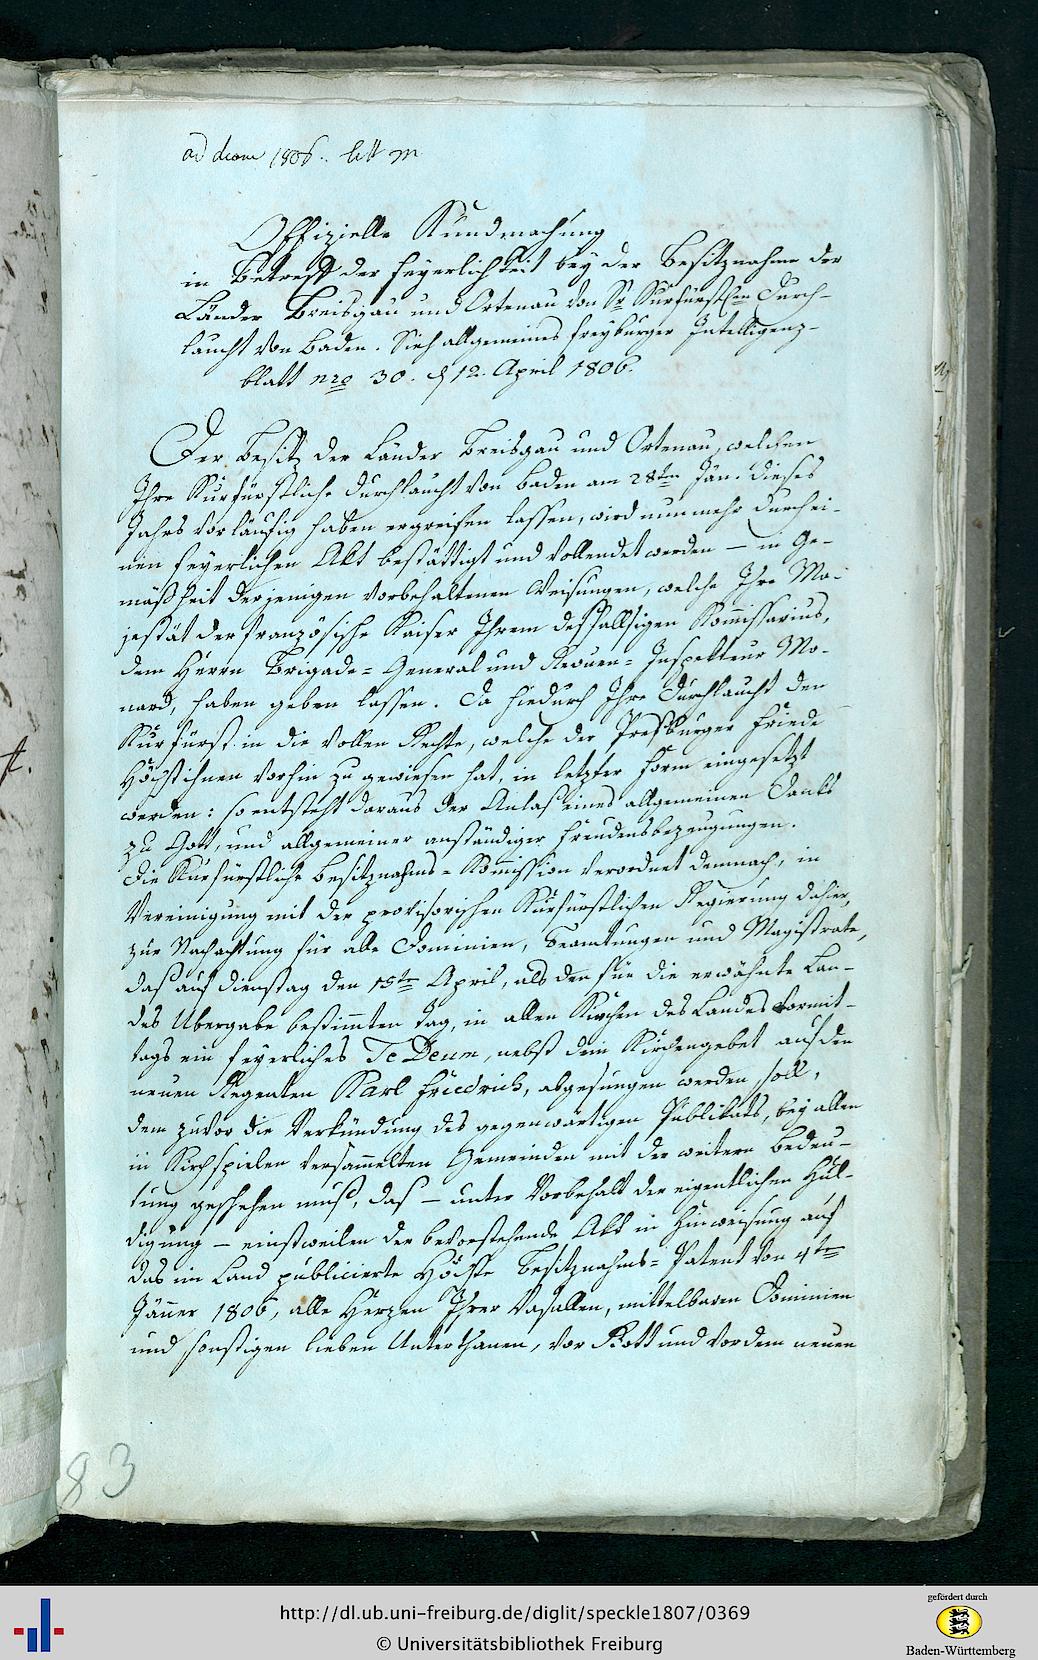 ad diem 1806. litt M
Offizielle Kundmachung
in Betreff der Feyerlichkeit bey der Besitznahme der
Länder Breisgau und Ortenau von Sr Kurfürstlen Durch-
laucht von Baden. Sieh allgemeines Freyburger Intelligenz-
blatt nro 30. d 12. April 1806.
Der Besitz der Länder Breisgau und Ortenau, welchen
Ihre Kurfürstliche Durchlaucht von Baden am 28ten Jän. dieses
Jahrs vorläufig haben ergreifen lassen, wird nunmehr durch ei-
nen feyerlichen Akt bestättigt und vollendet werden – in Ge-
mäßheit derjenigen vorbehaltenen Weisungen, welche Ihre Ma-
jestät der französische Kaiser Ihrem desfallsigen Kommissarius,
dem Herrn Brigade-General und Revuen-Inspekteur Mo-
nard, haben geben lassen. Da hiedurch Ihre Durchlaucht der
Kurfürst in die vollen Rechte, welche der Presburger Friede
Höchstihnen vorhin zu gewiesen hat, in letzter Form eingesetzt
werden: so entsteht daraus der Anlaß eines allgemeinen Danks
zu Gott, und allgemeiner anständiger Freudensbezeugungen.
Die Kurfürstliche Besitznahms-Kommission verordnet demnach, in
Vereinigung mit der provisorischen Kurfürstlichen Regierung dahier,
zur Nachachtung für alle Dominien, Beamtungen und Magistrate,
daß auf Dienstag den 15ten April, als den für die erwähnte Lan-
des Übergabe bestimmten Tag, in allen Kirchen des Landes Vormit-
tags ein feyerliches Te Deum, nebst dem Kirchengebet auf den
neuen Regenten Karl Friedrich, abgesungen werden soll,
dem zuvor die Verkündung des gegenwärtigen Publikats, bey allen
in Kirchspielen versammelten Gemeinden mit der weitern Bedeu-
tung geschehen muß, daß – unter Vorbehalt der eigentlichen Hul-
digung – einstweilen der bevorstehende Akt in Hinweisung auf
das im Land publicierte Höchste Besitznahms-Patent von 4ten
Jänner 1806, alle Herzen Ihrer Vasallen, mittelbaren Dominien
und sonstigen lieben Unterthanen, vor Gott und vor dem neuen
83
http://dl.ub.uni-freiburg.de/diglit/speckle1807/0369
© Universitätsbibliothek Freiburg
gefördert durch
Baden-Württemberg